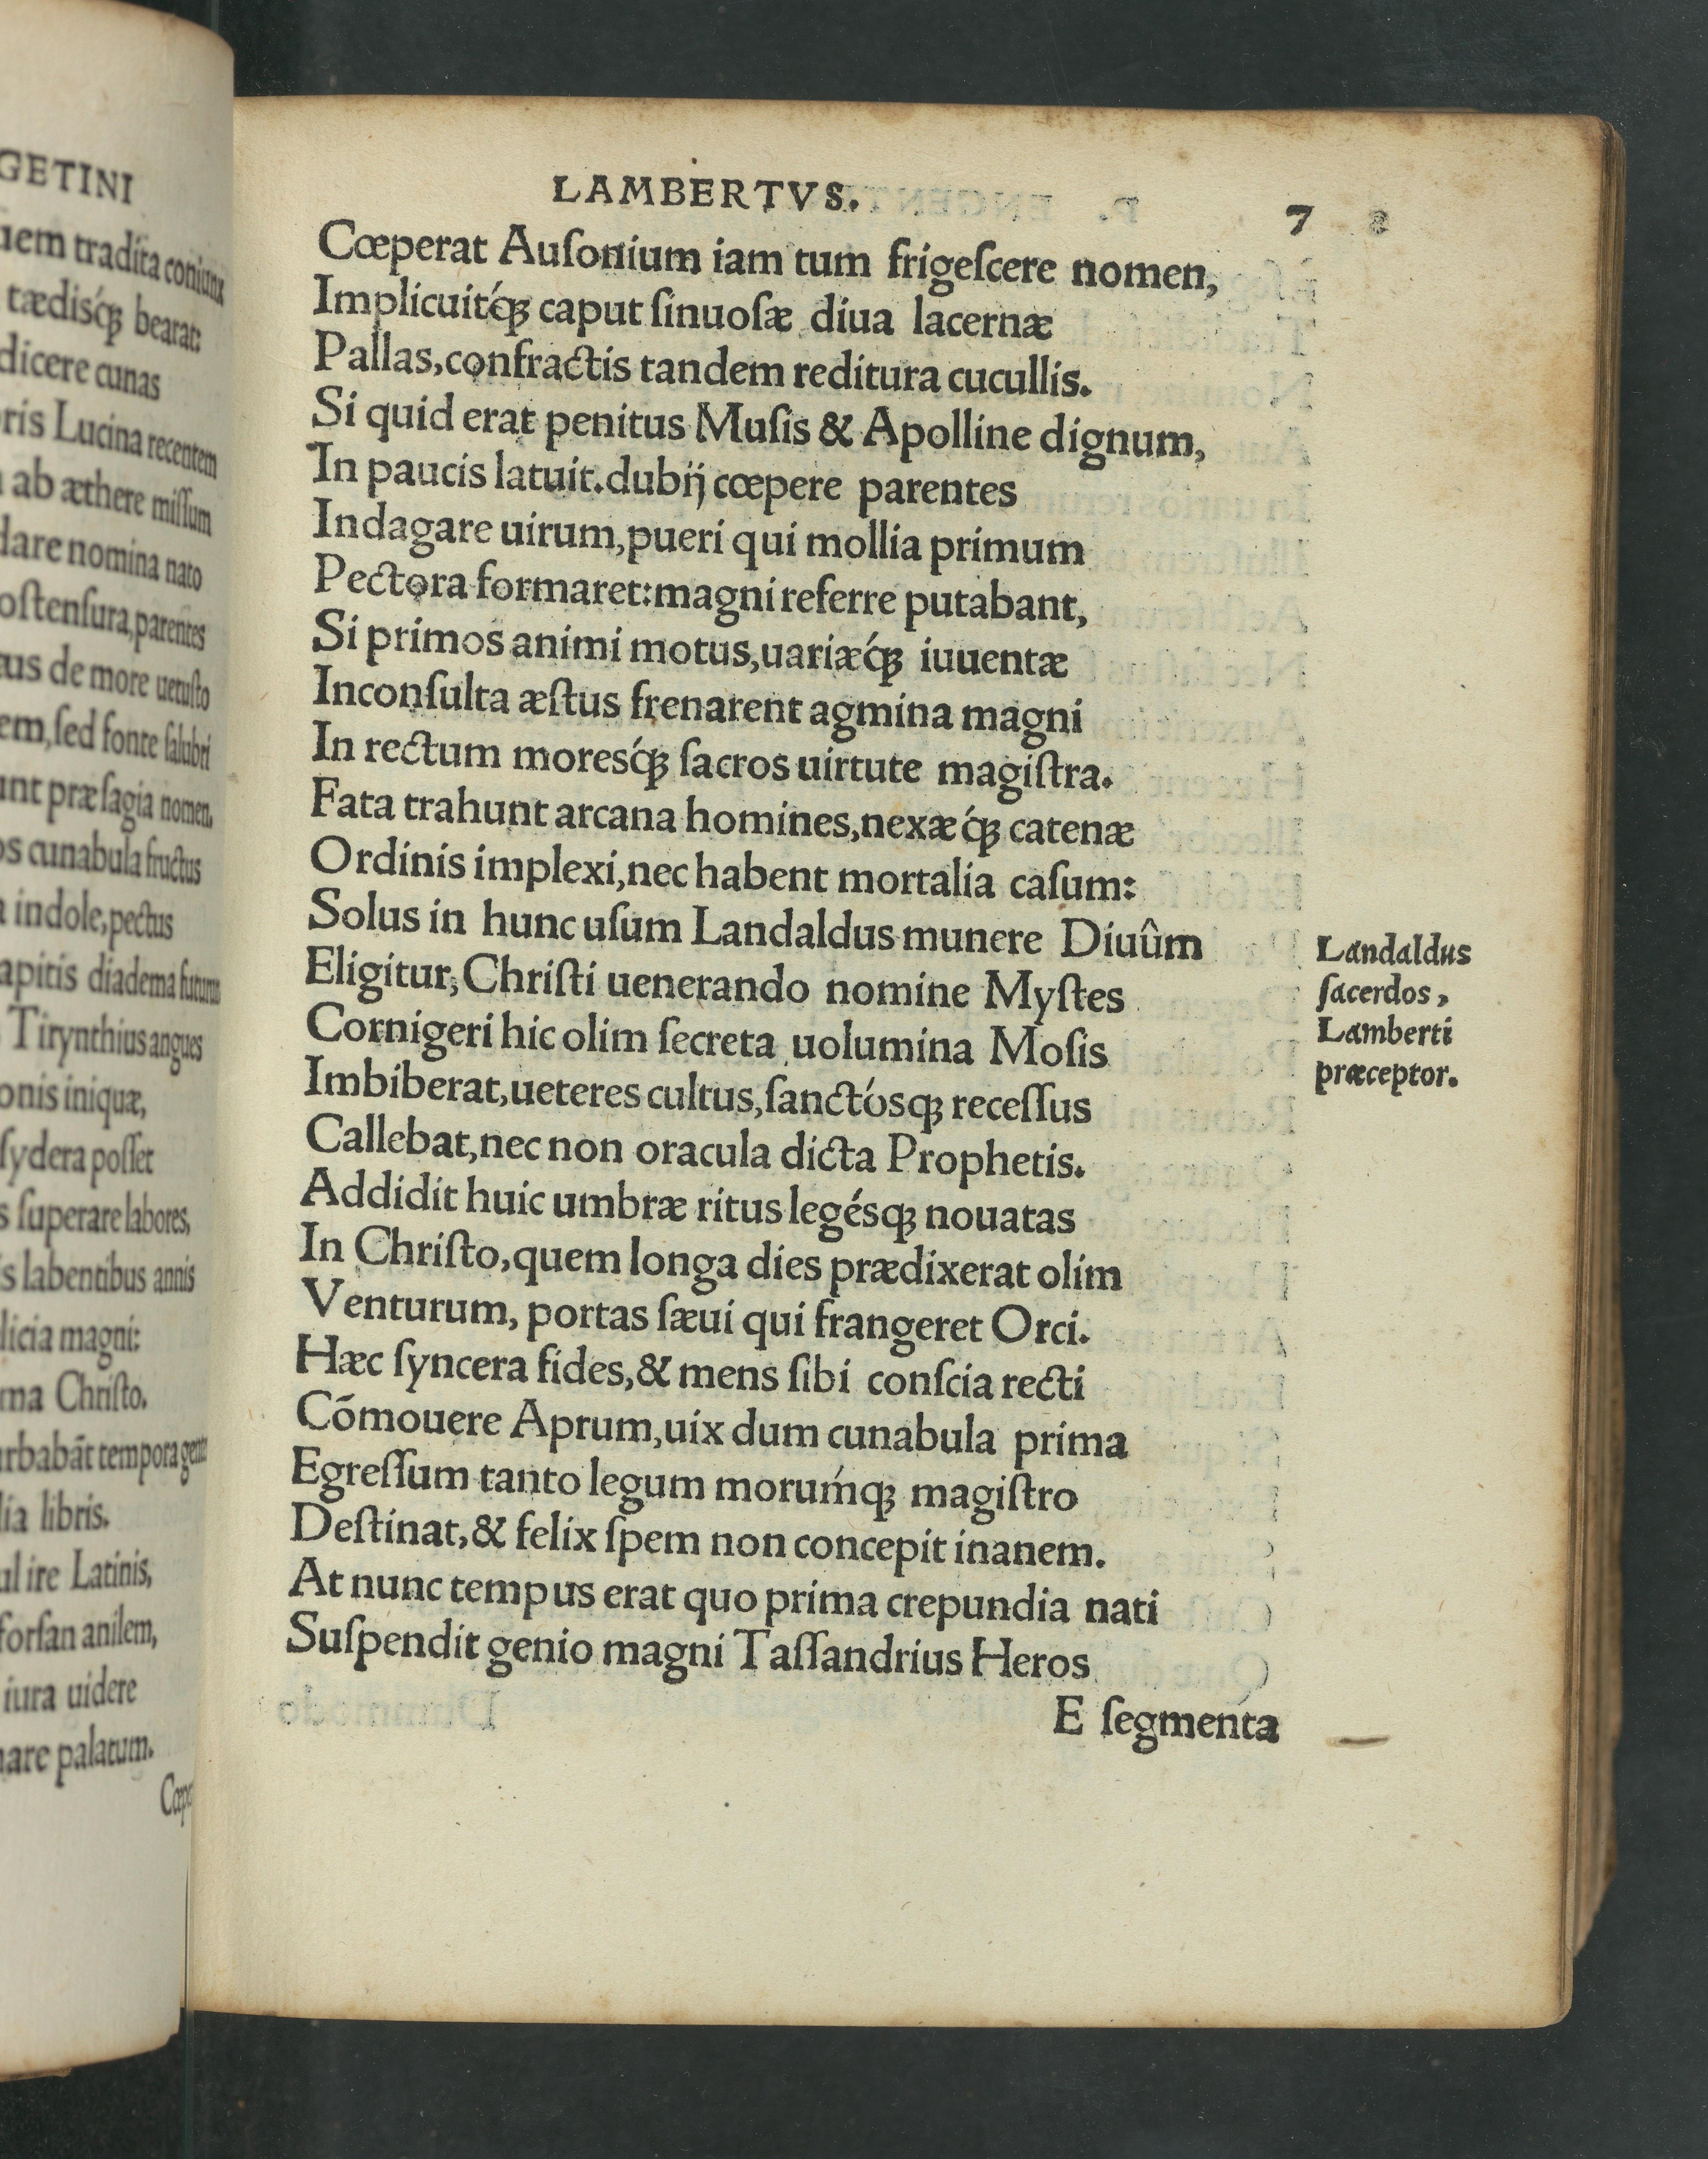 GETINI
tradita coniunx
tædisq́ꝫ bearat:
dicere cunas
Lucina recentem
ab æthere miſſum
dare nomina nato
oſtenſura, parentes
de more uetuſto
ſed fonte ſalubri
præſagia nomen.
cunabula fructus
indole, pectus
diadema futurus
Tirynthius angues
iniquæ,
ſydera poſſet
ſuperare labores,
labentibus annis
magni:
Chriſto.
tempora gentis
libris.
ire Latinis,
forſan anilem,
iura uidere
palatum.
LAMBERTVS. 7
Cœperat Auſonium iam tum frigeſcere nomen,
Implicuitq́ꝫ caput ſinuoſæ diua lacernæ
Pallas, confractis tandem reditura cucullis.
Si quid erat penitus Muſis & Apolline dignum,
In paucis latuit. dubij cœpere parentes
Indagare uirum, pueri qui mollia primum
Pectora formaret: magni referre putabant,
Si primos animi motus, uariæq́ꝫ iuuentæ
Inconſulta æſtus frenarent agmina magni
In rectum moresq́ꝫ ſacros uirtute magiſtra.
Fata trahunt arcana homines, nexæq́ꝫ catenæ
Ordinis implexi, nec habent mortalia caſum:
Solus in hunc uſum Landaldus munere Diuûm
Eligitur, Chriſti uenerando nomine Myſtes
Cornigeri hic olim ſecreta uolumina Moſis
Imbiberat, ueteres cultus, ſanctósqꝫ receſſus
Callebat, nec non oracula dicta Prophetis.
Addidit huic umbræ ritus legésqꝫ nouatas
In Chriſto, quem longa dies prædixerat olim
Venturum, portas ſæui qui frangeret Orci.
Hæc ſyncera fides, & mens ſibi conſcia recti
Cōmouere Aprum, uix dum cunabula prima
Egreſſum tanto legum moruḿqꝫ magiſtro
Deſtinat, & felix ſpem non concepit inanem.
At nunc tempus erat quo prima crepundia nati
Suſpendit genio magni Taſſandrius Heros
E ſegmenta
Landaldus
ſacerdos,
Lamberti
præceptor.